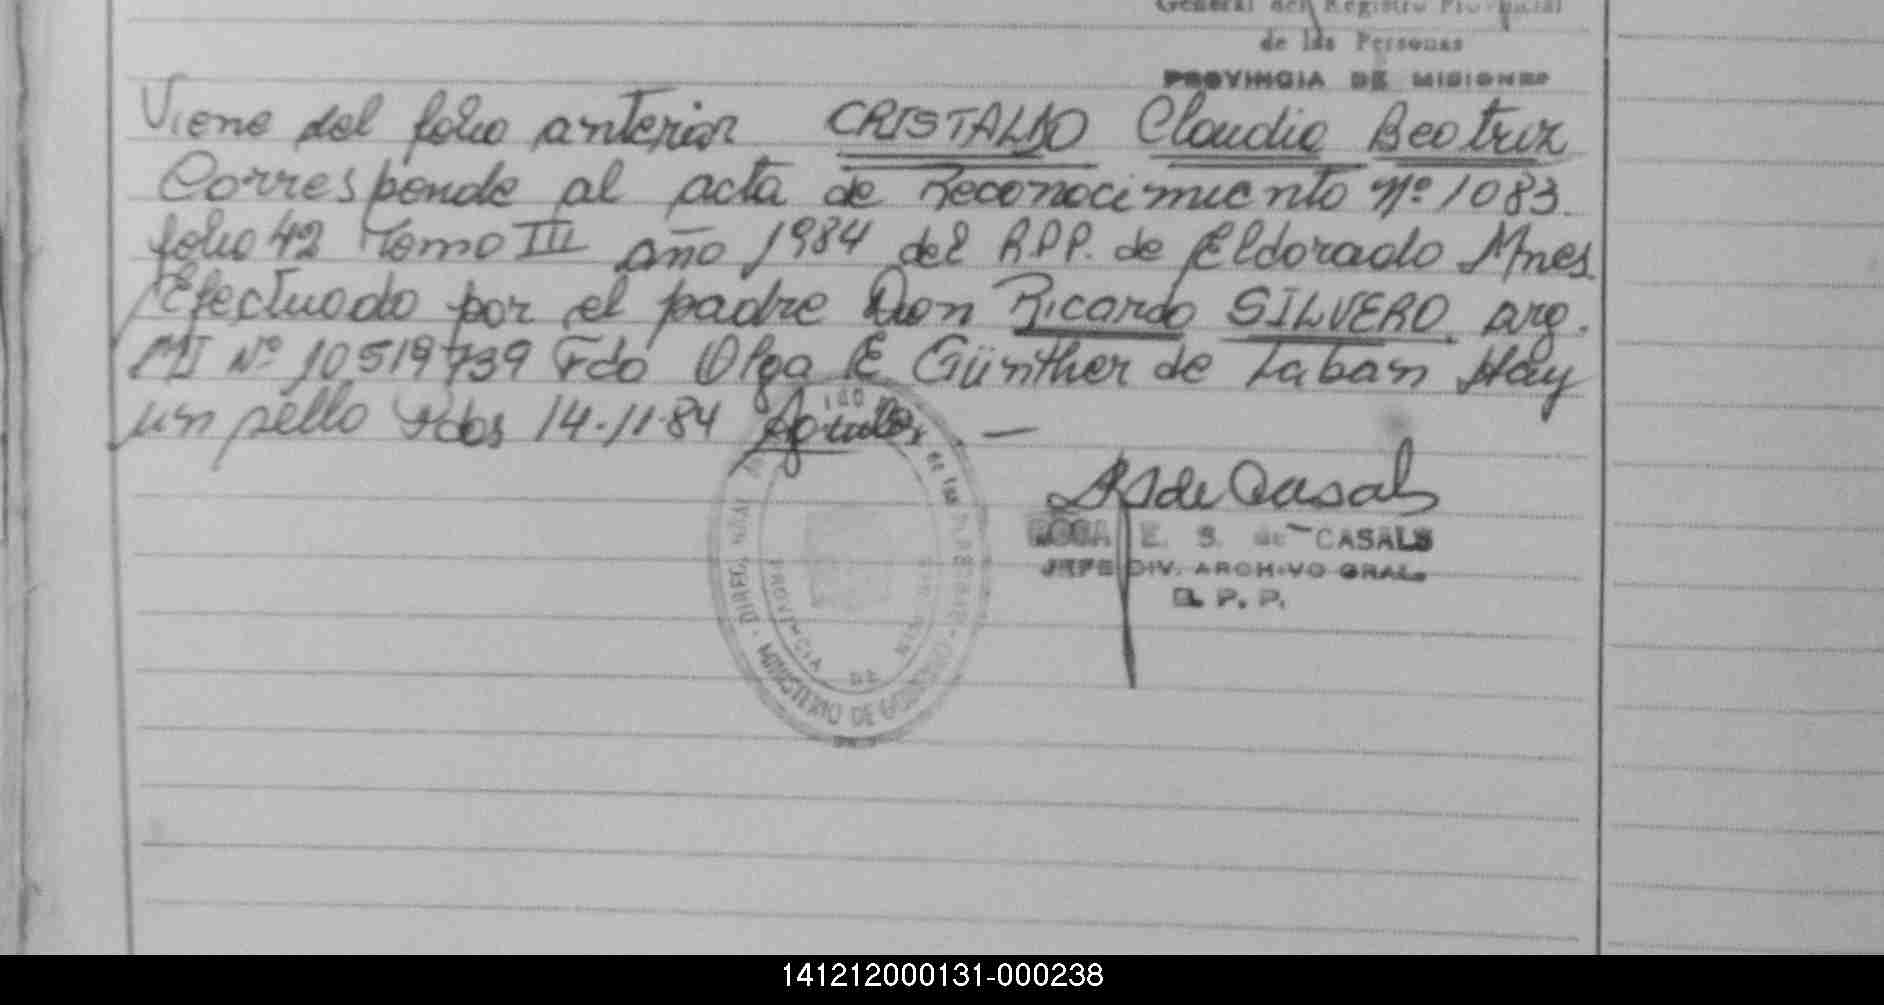 General del Registro Provincial
de las Personas
PROVINCIA DE MISIONES
Viene del folio anterior CRISTALDO Claudia Beatriz
Corresponde al acta de Reconocimiento Nº 1083.
folio 42 Tomo III año 1984 del R.P.P. de Eldorado Mnes.
Efectuado por el padre Don Ricardo SILVERO arg.
MI Nº 10519739 Fdo Olga E Günther de Laban Hay
un sello Pdos 14.11.84
de Casals
ROSA E. S. de CASALS
JEFE DIV. ARCHIVO GRAL.
R. P. P.
DIREC. GRAL
PROVINCIA DE
MINISTERIO DE GOBIERNO
141212000131-000238